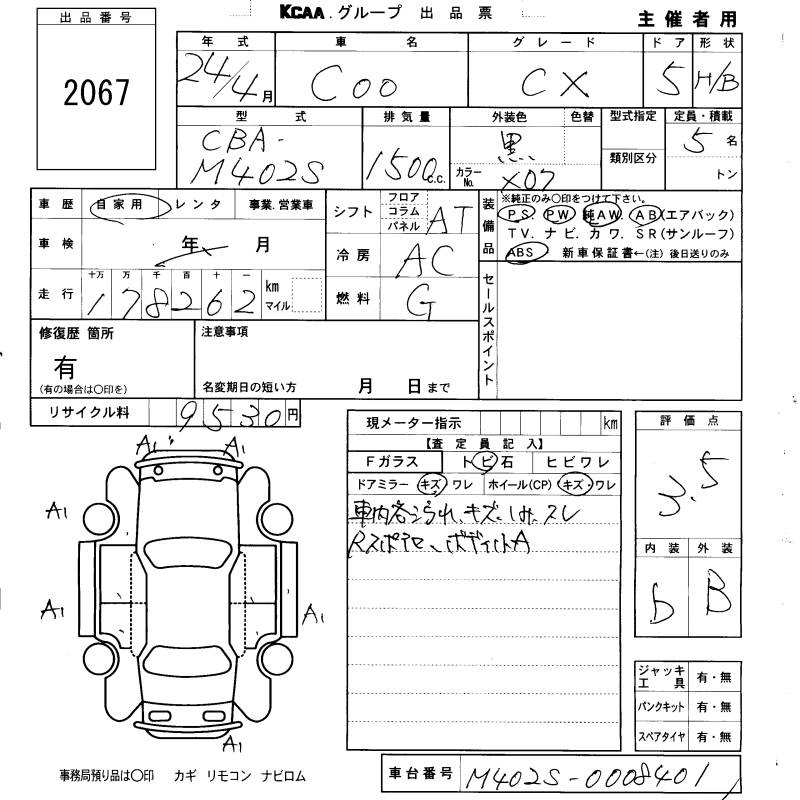 KCAA.グループ 出品票
主催者用
出品番号
2067
年式 車名 グレード ドア 形状
24/4月 COO CX 5 H/B
型式 排気量 外装色 色替 型式指定 定員・積載
CBA-
M402S
1500c.c.
黒
カラーNo. X07
類別区分
5名
トン
車歴 自家用 レンタ 事業.営業車
車検 年 月
走行 十万 万 千 百 十 一
178262 km マイル
シフト フロア コラム パネル AT
冷房 AC
燃料 G
装備品
※純正のみ〇印をつけて下さい。
PS PW 純AW. AB(エアバック)
TV.ナビ.カワ.SR(サンルーフ)
ABS 新車保証書←(注)後日送りのみ
セールスポイント
修復歴 箇所
有
(有の場合は〇印を)
注意事項
名変期日の短い方 月 日まで
リサイクル料 9530円
現メーター指示 km
【査定員記入】
Fガラス トビ石 ヒビワレ
ドアミラー キズ ワレ ホイール(CP) キズ・ワレ
車内 キズ、しみ、スレ
A
評価点
3.5
内装 外装
b B
ジャッキ工具 有・無
パンクキット 有・無
スペアタイヤ 有・無
A1 A1
A1
A1 A1
A1
事務局預り品は〇印 カギ リモコン ナビロム
車台番号 M402S-0008401